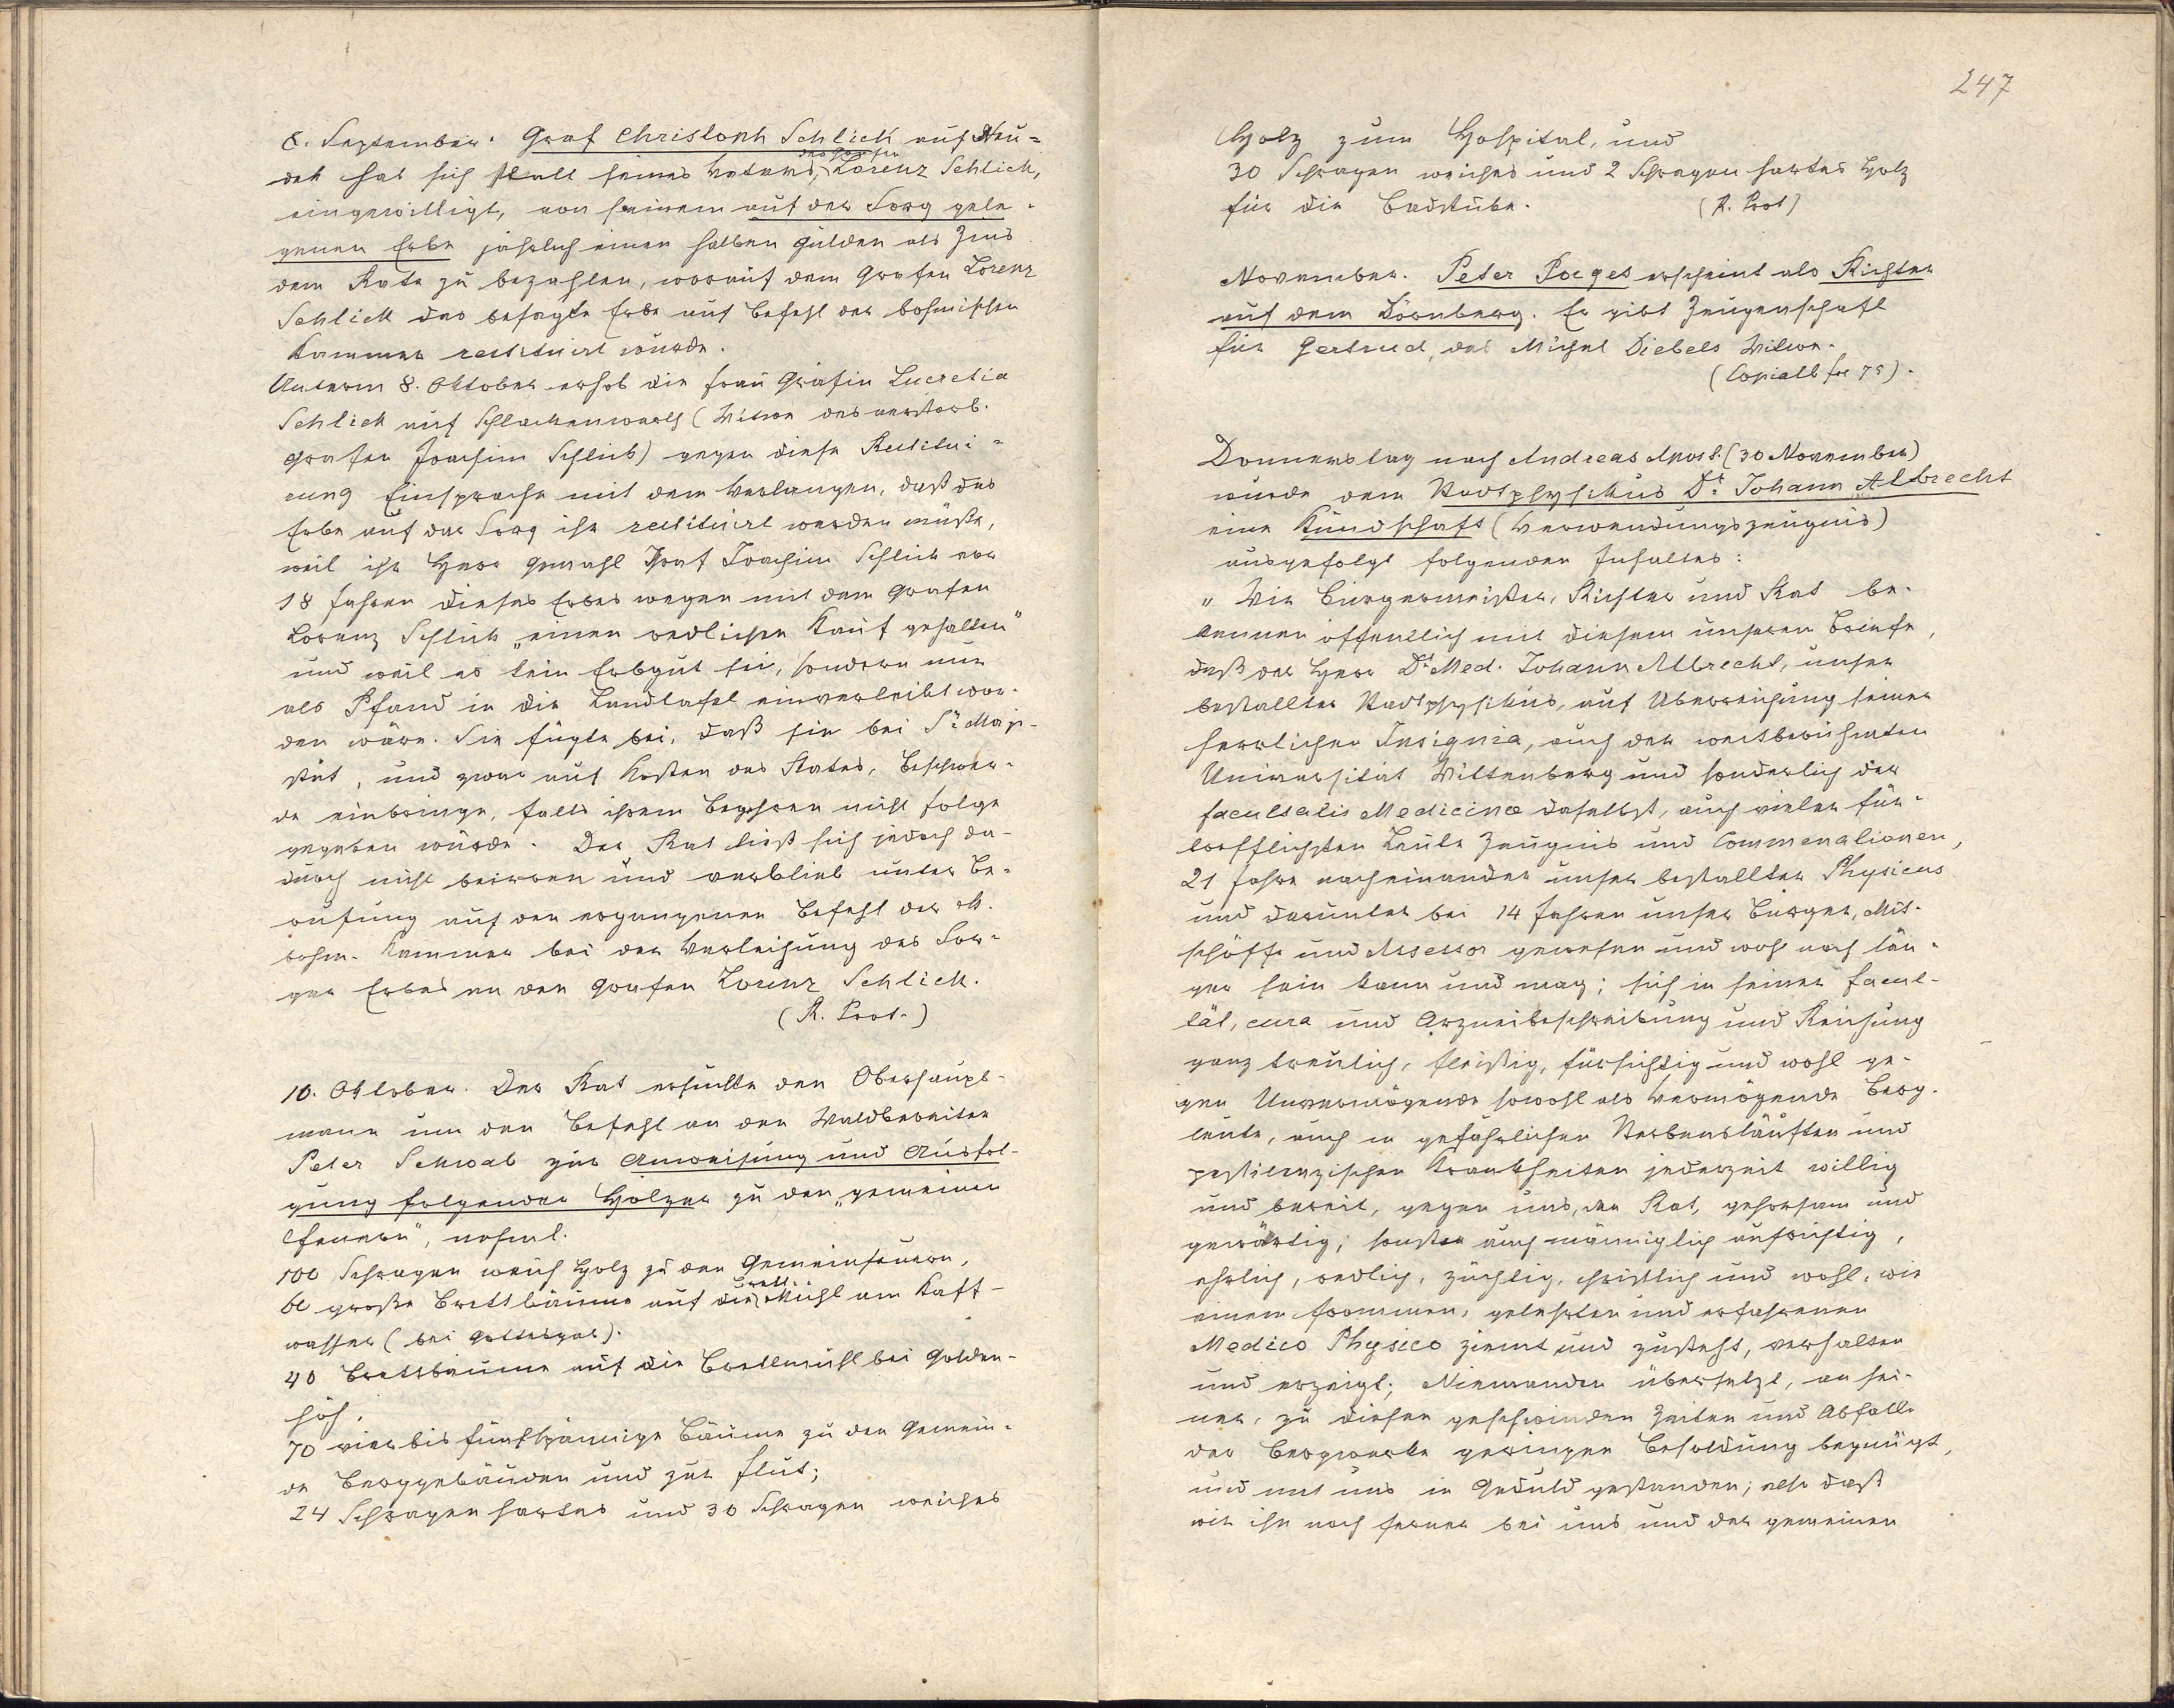 8. September. Graf Christoph Schlick auf Neu=
dek hat sich statt seines Vaters, des Grafen Lorenz Schlick,
eingewilligt, von seinem auf der Sorg gele-
genen Erbe jährlich einen halben Gulden als Zins
dem Rate zu bezahlen, worauf dem Grafen Lorenz
Schlick das besagte Erbe auf Befehl der böhmischen
Kammer restituirt wurde.
Unterm 8. Oktober erhob die Frau Gräfin Lucretia
Schlick auf Schlackenwerth (Witwe des verstorb.
Grafen Joachim Schlick) gegen diese Restitui=
rung Einsprache mit dem Verlangen, daß das
Erbe auf der Sorg ihr restituirt werden müßte,
weil ihr Herr Gemahl Graf Joachim Schlick vor
18 Jahren dieses Erbes wegen mit dem Grafen
Lorenz Schlick „einen redlichen Kauf gehalten"
und weil es kein Erbgut sei, sondern nur
als Pfand in die Landtafel einverleibt wor-
den wäre. Sie fügte bei, daß sie bei Sr. Maje-
stät, und zwar auf Kosten des Rates, Beschwer-
de einbringe, falls ihrem Begehren nicht Folge
gegeben würde. Der Rat ließ sich jedoch da-
durch nicht beirren und verblieb unter Be-
rufung auf den ergangenen Befehl der k.
böhm. Kammer bei der Verleihung des Sor-
ger Erbes an den Grafen Lorenz Schlick.
(R. Prot.)
10. Oktober. Der Rat ersuchte den Oberhaupt-
mann um den Befehl an den Waldbereiter
Peter Schwab zur Anweisung und Ausfol-
gung folgender Hölzer zu den „gemeinen
Feuern", nehml.
100 Schragen weich Holz zu den Gemeinfeuern,
große Brettbäume auf die Brett-Mühl am Kaff-
wasser (bei Gottesgab).
40 Brettbäume auf die Brettmühl bei Golden-
höh.
70 vier bis fünfspännige Bäume zu den Gemein-
de Berggebäuden und zur Flut;
24 Schragen hartes und 30 Schragen weiches
247
Holz zum Hospital, und
30 Schragen weiches und 2 Schragen hartes Holz
für die Badstube. (R. Prot)
November. Peter Porges erscheint als Richter
auf dem Dörnberg. Er gibt Zeugenschaft
für Gertrud, des Michel Diebels Witwe.
(Copialb fol 75).
Donnerstag nach Andreas Apost. (30 November)
wurde dem Stadtphysikus Dr. Johann Albrecht
eine Kundschaft (Verwendungszeugnis)
ausgefolgt folgenden Inhaltes:
„Wir Bürgermeister, Richter und Rat be-
kennen öffentlich mit diesem unseren Briefe,
daß der Herr Dr. Med. Johann Albrecht, unser
bestallter Stadtphysikus, auf Überreichung seiner
herrlichen Insignia, auch der weitberühmten
Universität Wittenberg und sonderlich der
facultatis Medicinæ daselbst, auch vieler für-
trefflichsten Leute Zeugnis und Commenationen,
21 Jahre nacheinander unser bestallter Physicus
und darunter bei 14 Jahren unser Bürger, Mit-
schöffe und Assessor gewesen und wohl noch län-
ger sein kann und mag; sich in seiner Facul-
tät, cura und Arzneibeschreibung und Reichung
ganz treulich, fleißig, fürsichtig und wohl ge-
gen Unvermögende sowohl als Vermögende Berg-
leute, auch in gefährlichen Sterbensläuften und
pestilenzischen Krankheiten jederzeit willig
und bereit, gegen uns, den Rat, gehorsam und
gewärtig; sonsten auch männiglich aufrichtig,
ehrlich, redlich, züchtig, christlich und wohl, wie
einem frommen, gelehrten und erfahrenen
Medico Physico ziemt und zusteht, verhalten
und erzeigt; Niemanden übersetzt, an sei-
ner, zu diesen geschwinden Zeiten und Abfall
der Bergwerke geringen Besoldung begnügt,
und mit uns in Geduld gestanden; also daß
wir ihn noch ferner bei uns und der gemeinen